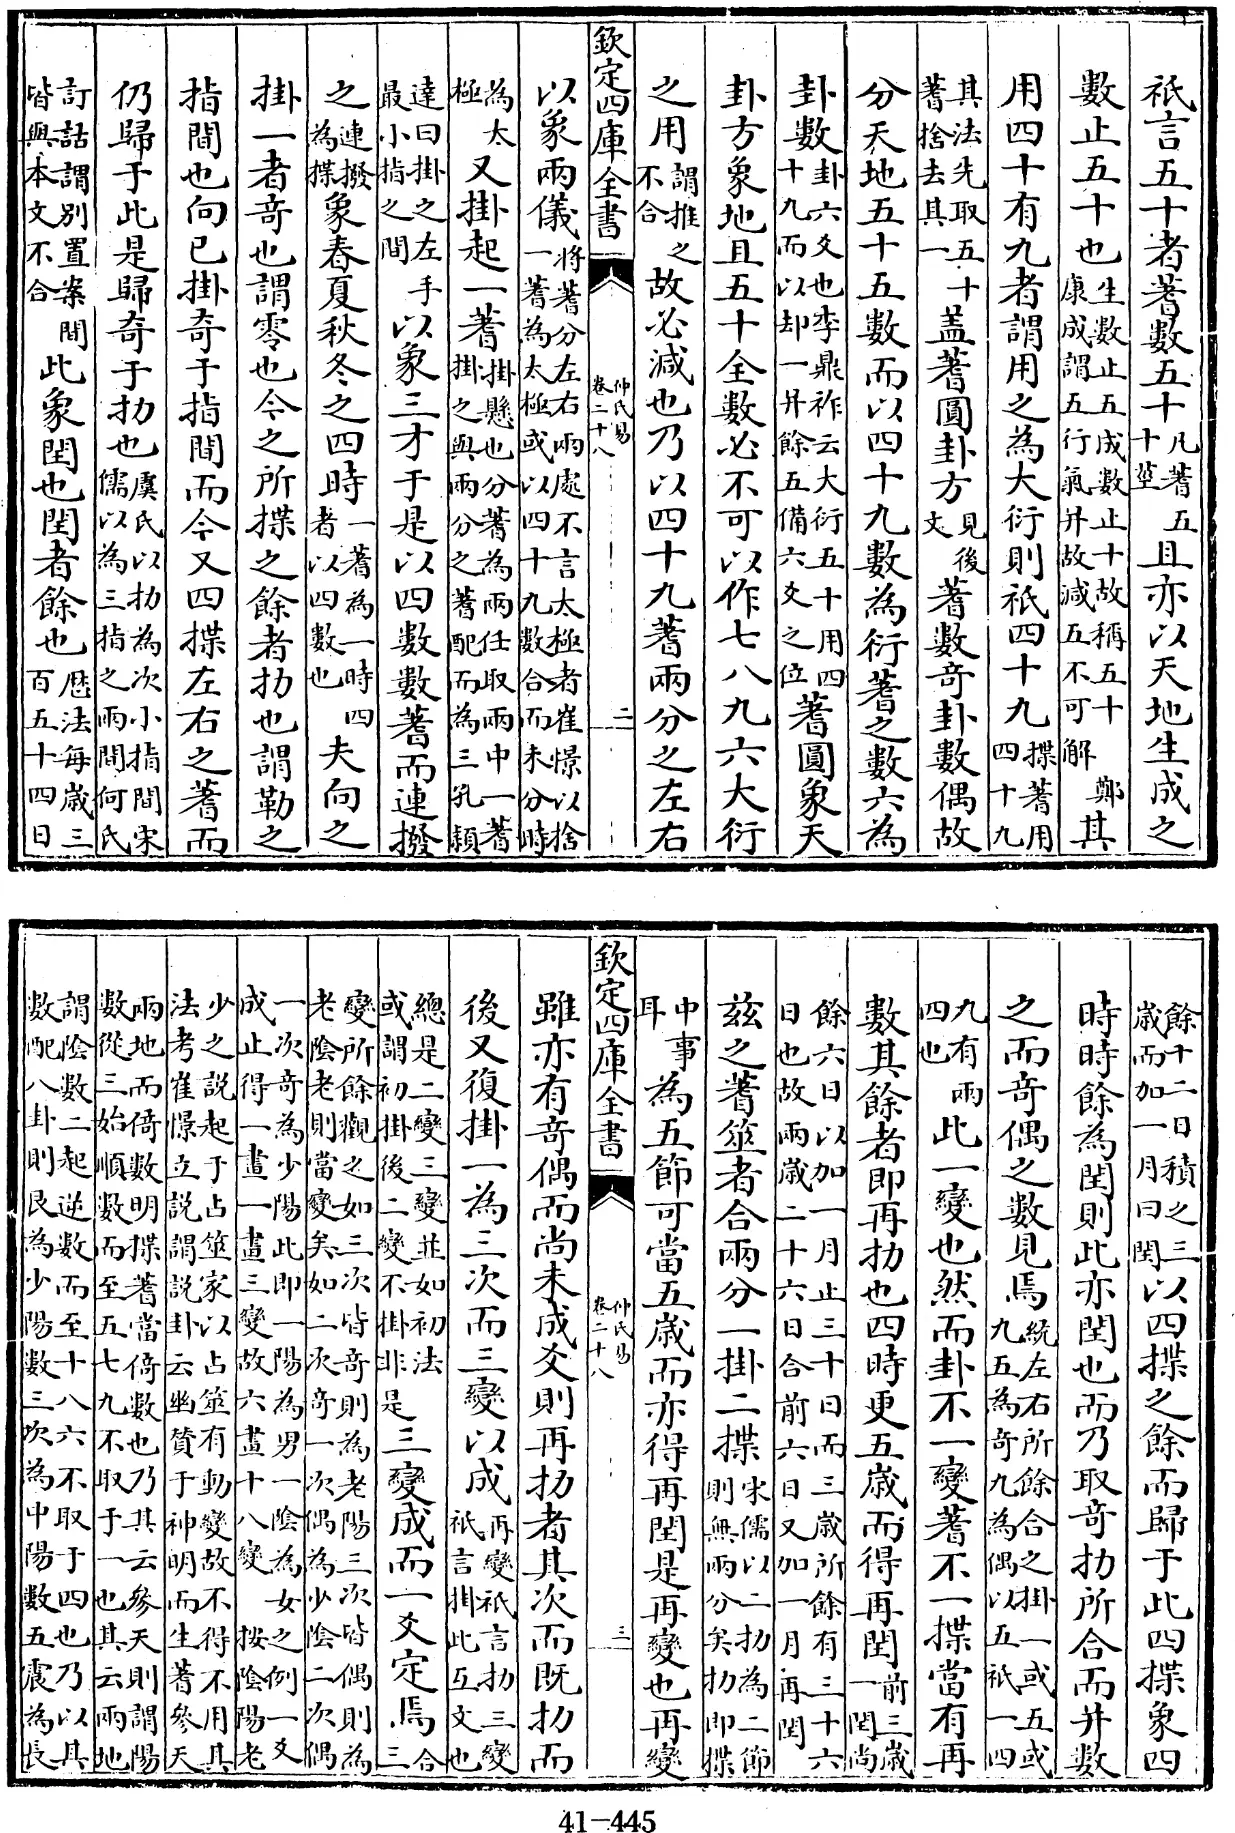 祇言五十者蓍數五十凡蓍五十莖且亦以天地生成之
數止五十也生數止五成數止十故稱五十鄭康成謂五行氣并故減五不可解其
用四十有九者謂用之為大衍則祇四十九揲蓍用四十九
其法先取五十蓍捨去其一蓋蓍圓卦方見後文蓍數奇卦數偶故
分天地五十五數而以四十九數為衍蓍之數六為
卦數卦六爻也李鼎祚云大衍五十用四十九而以却一并餘五備六爻之位蓍圓象天
卦方象地且五十全數必不可以作七八九六大衍
之用謂推之不合故必減也乃以四十九蓍兩分之左右
欽定四庫全書
仲氏易
卷二十八
二
以象兩儀將蓍分左右兩處不言太極者崔憬以捨一蓍為太極或以四十九數合而未分時
為太極又掛起一蓍掛懸也分蓍為兩任取兩中一蓍掛之與兩分之蓍配而為三孔穎
達曰掛之左手最小指之間以象三才于是以四數數蓍而連撥
之連撥為揲象春夏秋冬之四時一蓍為一時四者以四數也夫向之
掛一者奇也謂零也今之所揲之餘者扐也謂勒之
指間也向已掛奇于指間而今又四揲左右之蓍而
仍歸于此是歸奇于扐也虞氏以扐為次小指間宋儒以為三指之兩間何氏
訂詁謂別置案間皆與本文不合此象閏也閏者餘也歴法每歲三百五十四日
餘十二日積之三歲而加一月曰閏以四揲之餘而歸于此四揲象四
時時餘為閏則此亦閏也而乃取奇扐所合而并數
之而奇偶之數見焉統左右所餘合之掛一或五或九五為奇九為偶以五祇一四
九有兩四也此一變也然而卦不一變蓍不一揲當有再
數其餘者即再扐也四時更五歲而得再閏前三歲一閏尚
餘六日以加一月止三十日而三歲所餘有三十六日也故兩歲二十六日合前六日又加一月再閏
茲之蓍筮者合兩分一掛二揲宋儒以二扐為二節則無兩分矣扐即揲
中事耳為五節可當五歲而亦得再閏是再變也再變
欽定四庫全書
仲氏易
卷二十八
三
雖亦有奇偶而尚未成爻則再扐者其次而既扐而
後又復掛一為三次而三變以成再變祇言扐三變祇言掛此互文也
總是二變三變並如初法或謂初掛後二變不掛非是三變成而一爻定焉合三
變所餘觀之如三次皆奇則為老陽三次皆偶則為老陰老則當變矣如二次奇一次偶為少陰二次偶
一次奇為少陽此即一陽為男一陰為女之例一爻成止得一畫一畫三變故六畫十八變按陰陽老
少之説起于占筮家以占筮有動變故不得不用其法考崔憬立説謂説卦云幽贊于神明而生蓍參天
兩地而倚數明揲蓍當倚數也乃其云參天則謂陽數從三始順數而至五七九不取于一也其云兩地
謂陰數二起逆數而至十八六不取于四也乃以其數配八卦則艮為少陽數三坎為中陽數五震為長
41-445